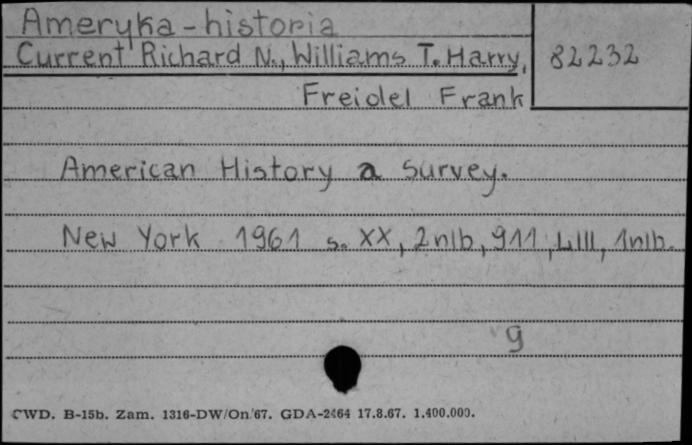 Ameryka - historia
Current Richard N., Williams T. Harry,
82232
Freidel Frank
American History a survey.
New York 1961 s. XX, 2nlb, 911, LIII, 1nlb.
g
CWD. B-15b. Zam. 1316-DW/On/67. GDA-2464 17.8.67. 1.400.000.